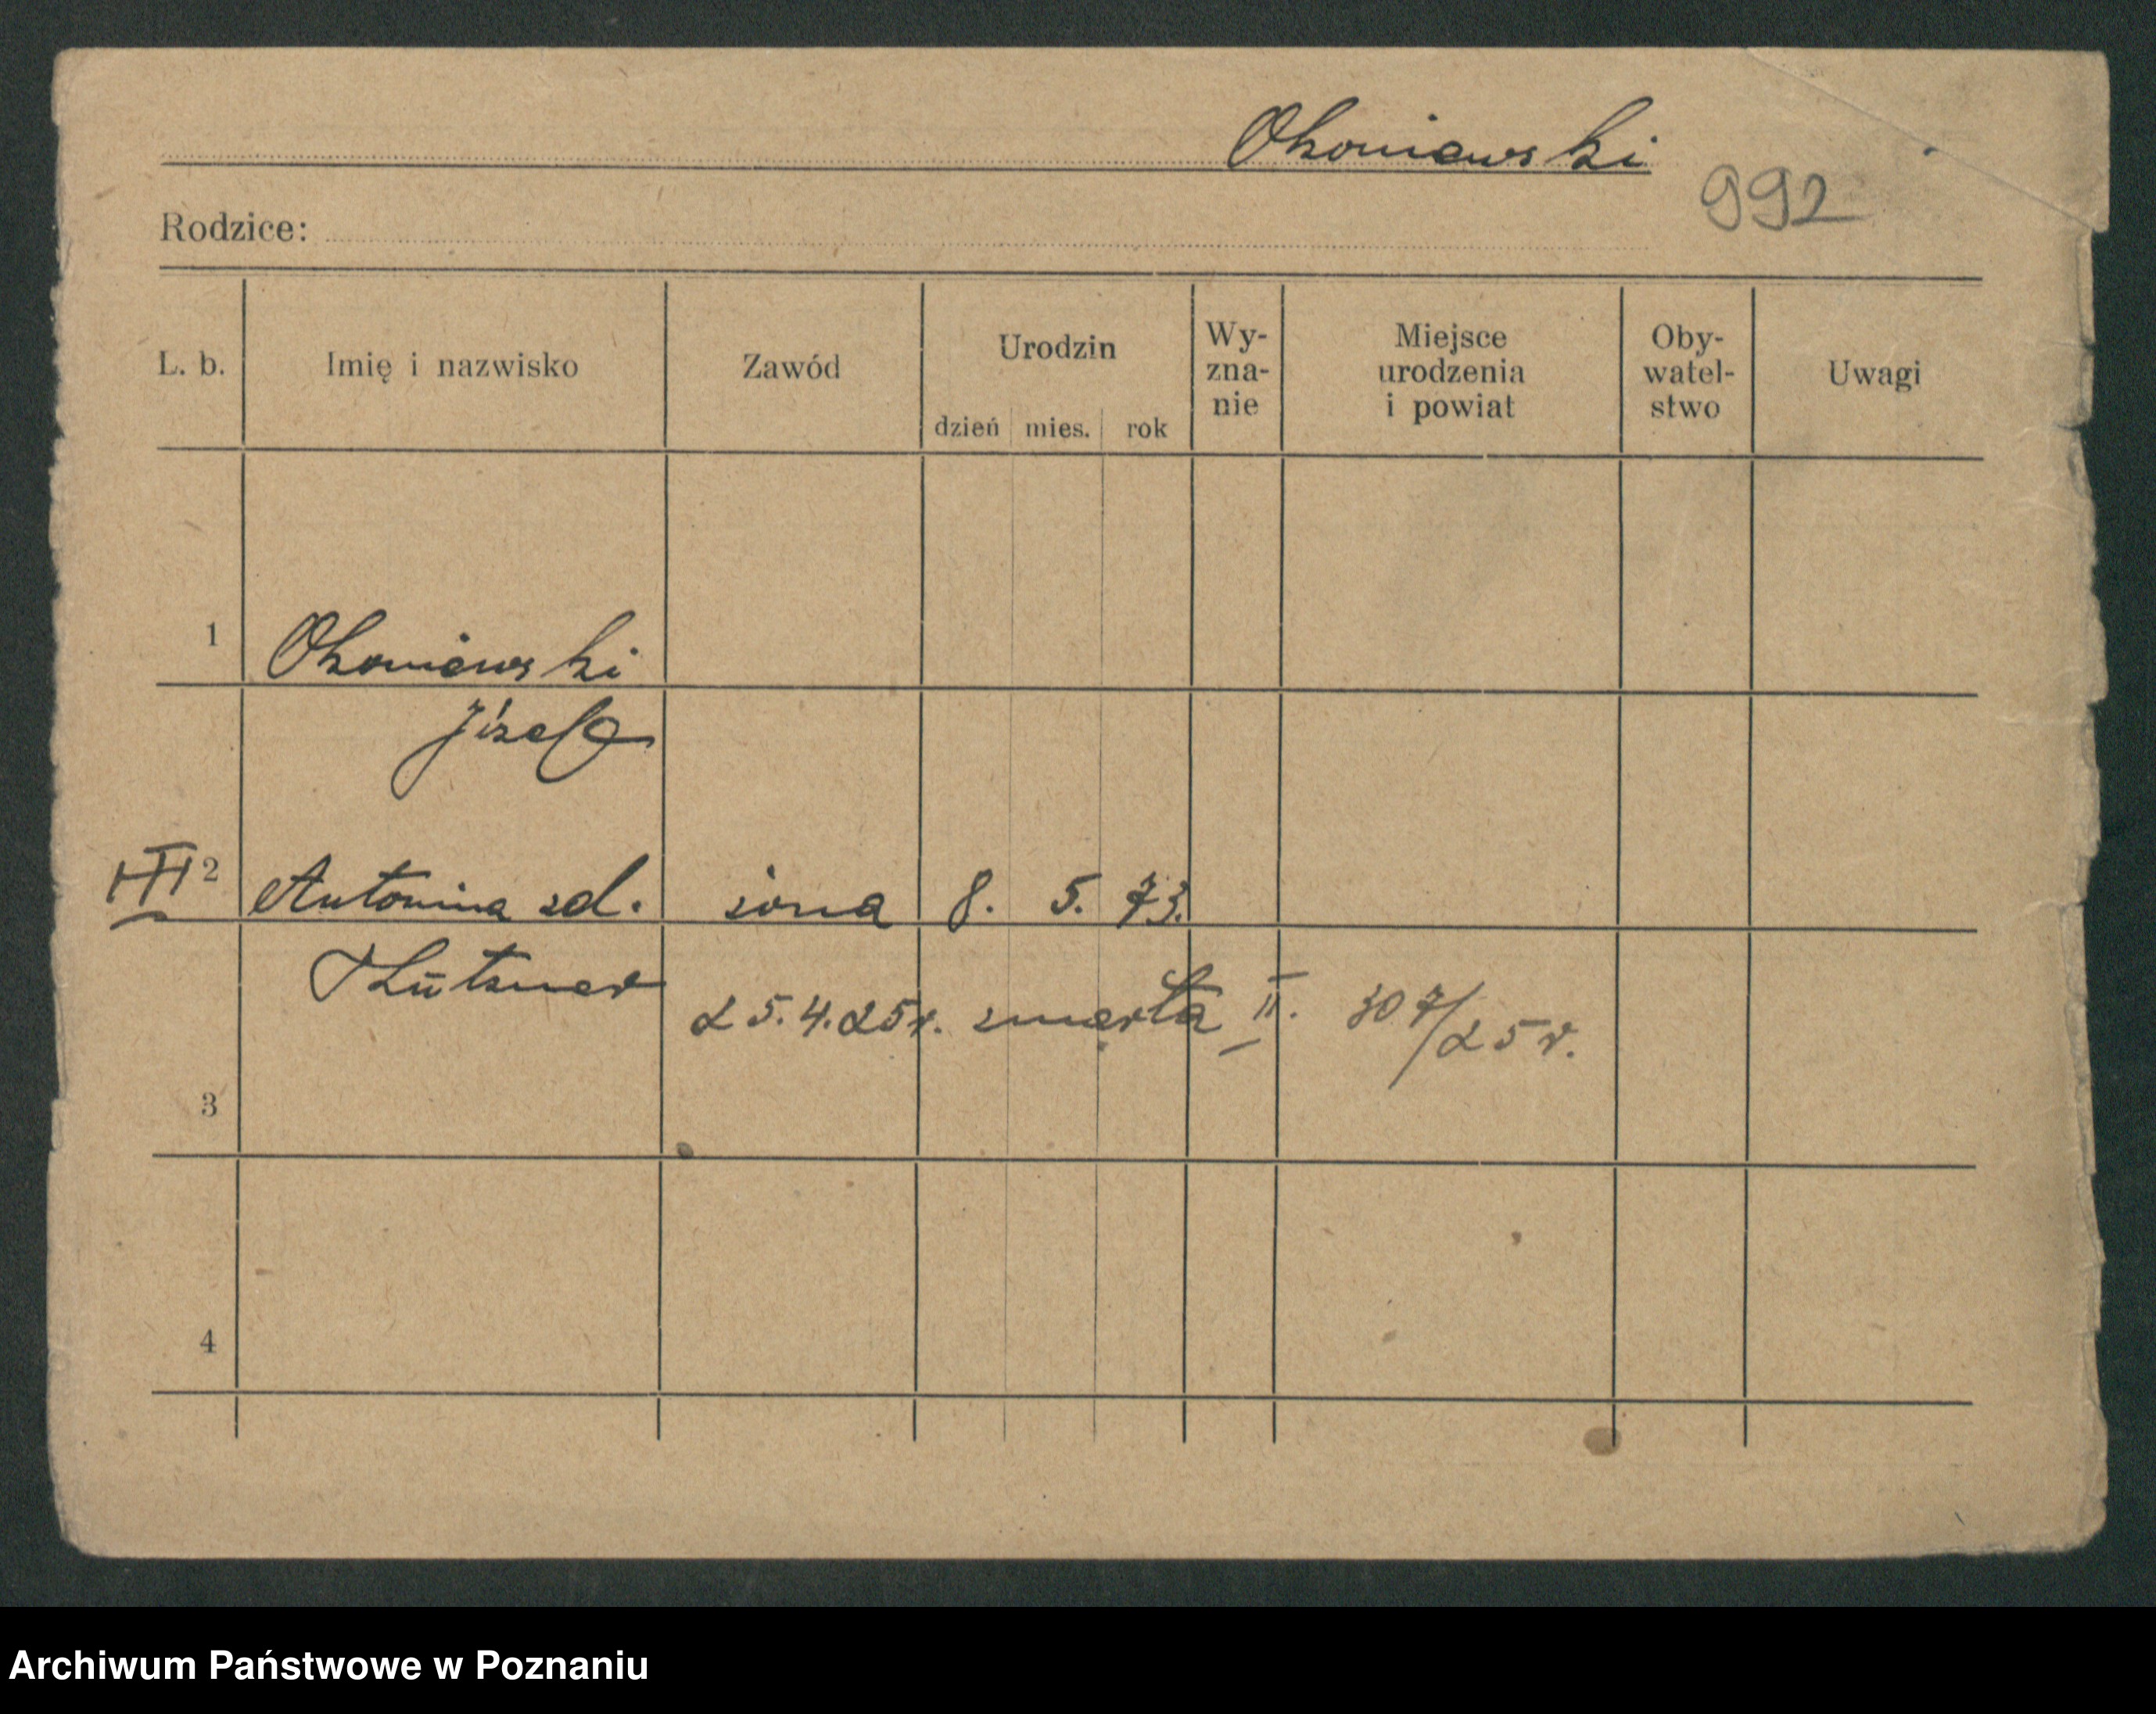 Okoniewski
992
Rodzice:
L. b. Imię i nazwisko Zawód Urodzin dzień mies. rok Wy-zna-nie Miejsce urodzenia i powiat Oby-watel-stwo Uwagi
1 Okoniewski
Józef
III 2 Antonina zd. żona 8. 5. 73.
25.4.25r. zmarła II. 307/25 r.
3
4
Archiwum Państwowe w Poznaniu